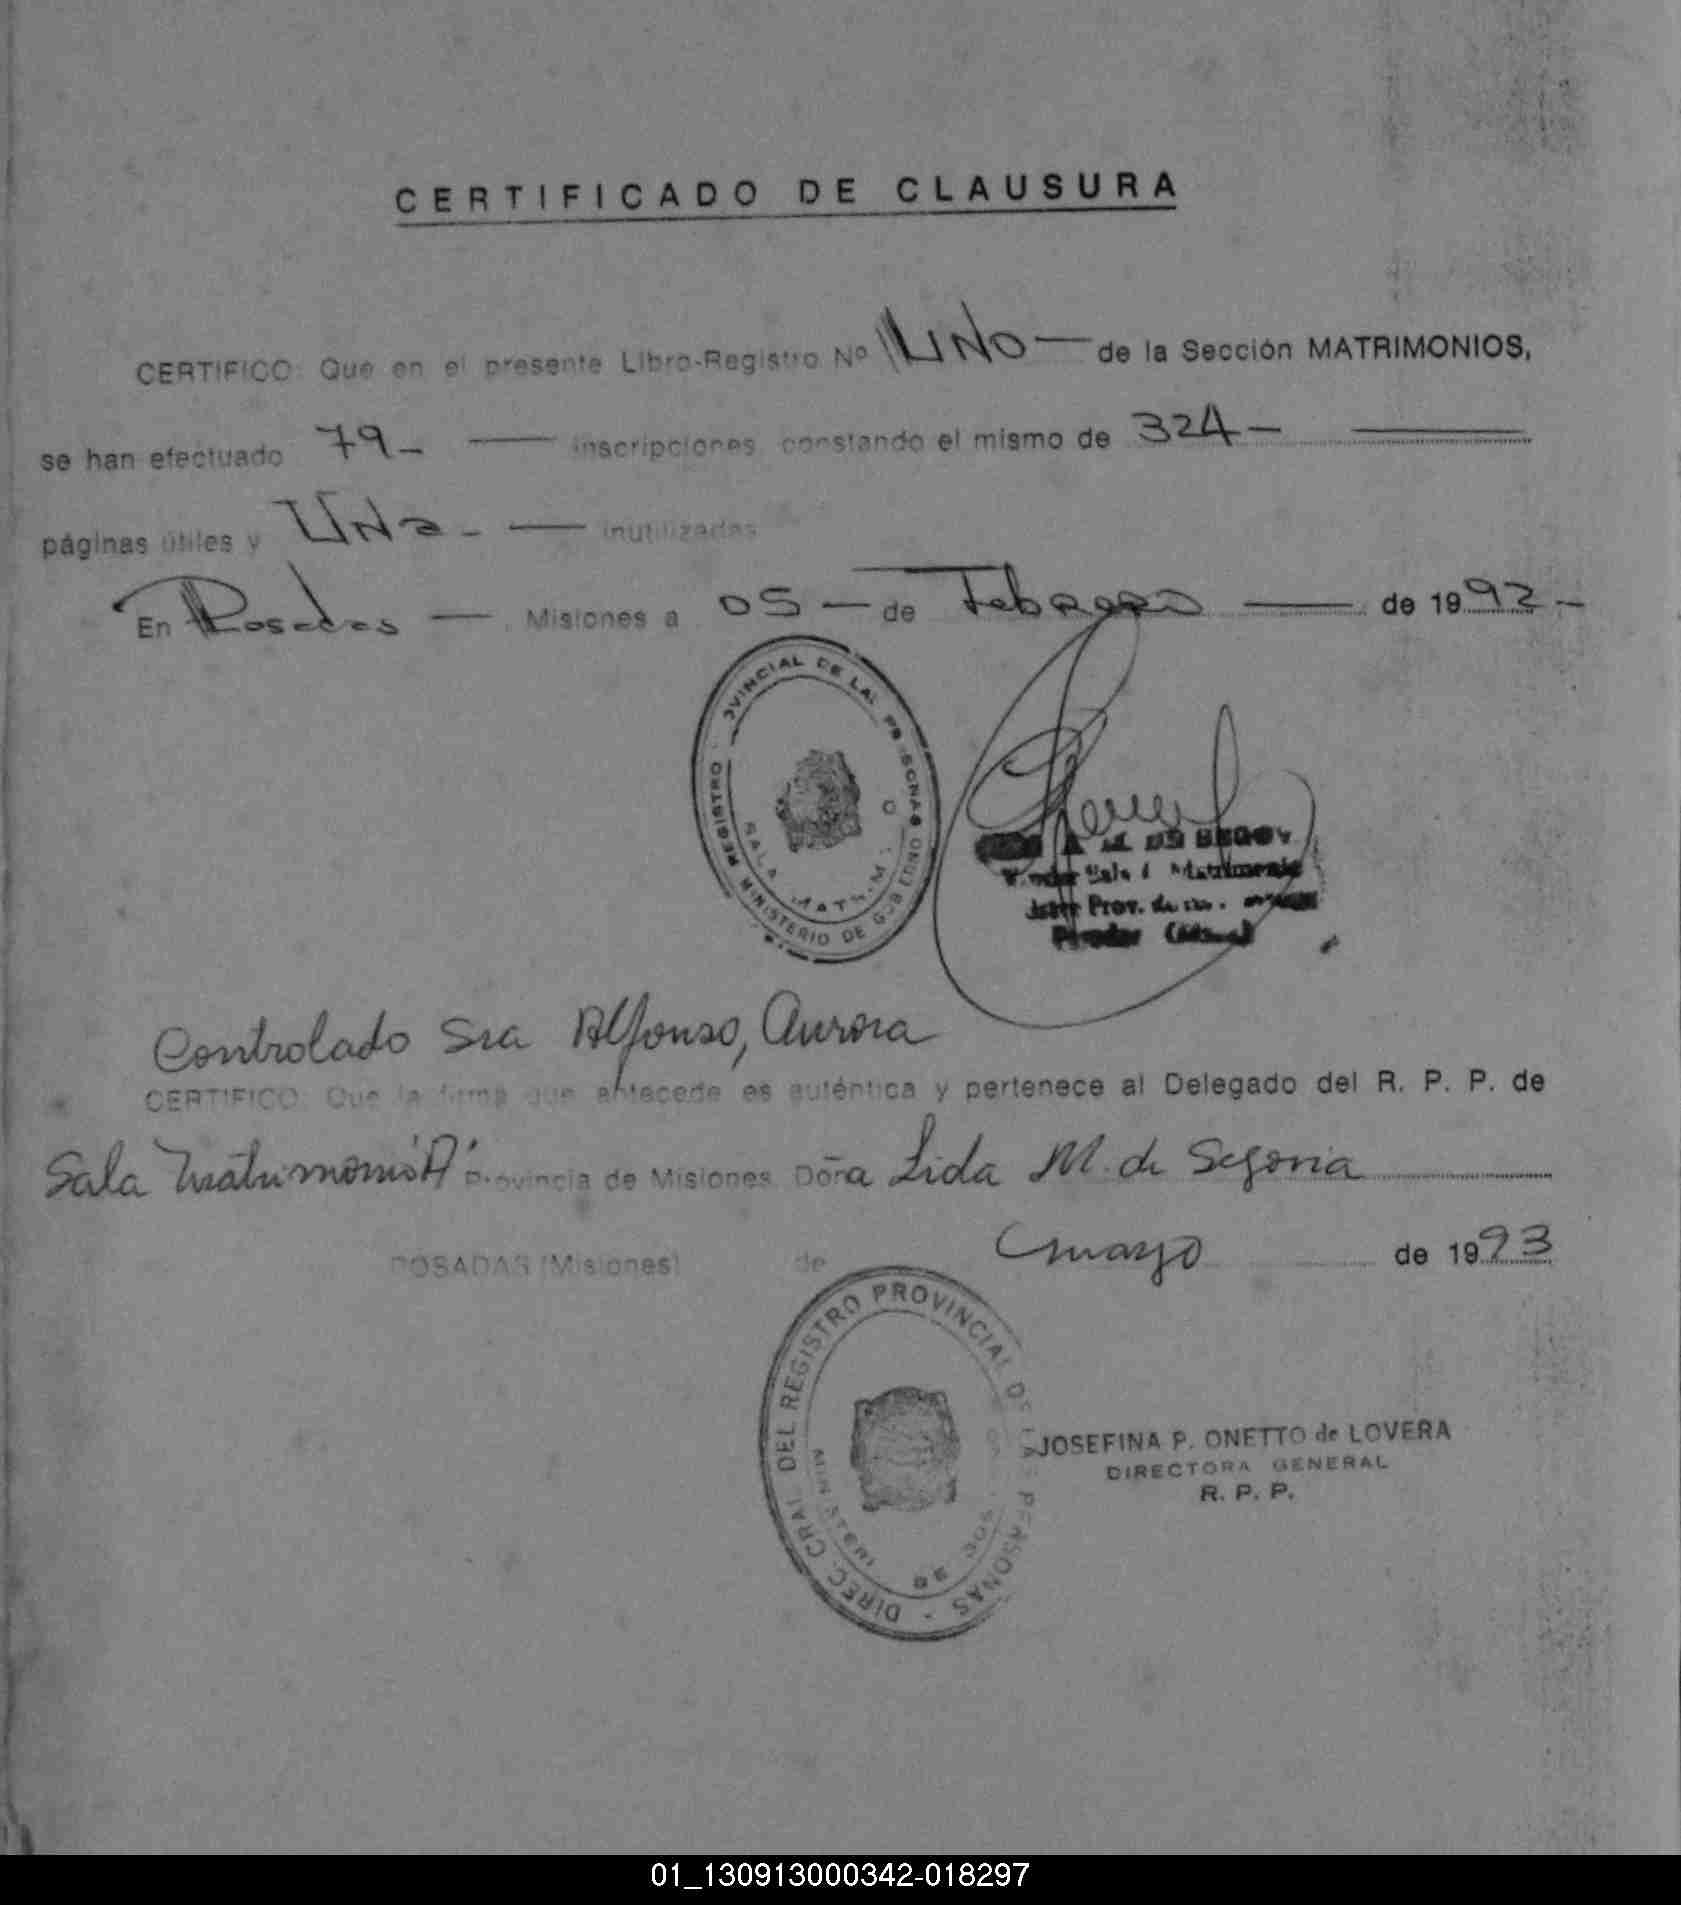 CERTIFICADO DE CLAUSURA
CERTIFICO: Que en el presente Libro-Registro Nº UNO — de la Sección MATRIMONIOS,
se han efectuado 79 — inscripciones constando el mismo de 324 —
páginas útiles y Una — inutilizadas
En Posadas — Misiones a 05 — de Febrero — de 1992 —
REGISTRO PROVINCIAL DE LAS PERSONAS
MINISTERIO DE GOBIERNO
SALA MATRIM.
Sala Matrimonio
Prov.
Controlado Sra Alfonso, Aurora
CERTIFICO: Que la firma que antecede es auténtica y pertenece al Delegado del R. P. P. de
Sala Matrimonio "A" Provincia de Misiones Doña Lida M. de Segovia
POSADAS (Misiones) de mayo de 1993
DIREC. GRAL DEL REGISTRO PROVINCIAL DE LAS PERSONAS -
JOSEFINA P. ONETTO de LOVERA
DIRECTORA GENERAL
R. P. P.
01_130913000342-018297